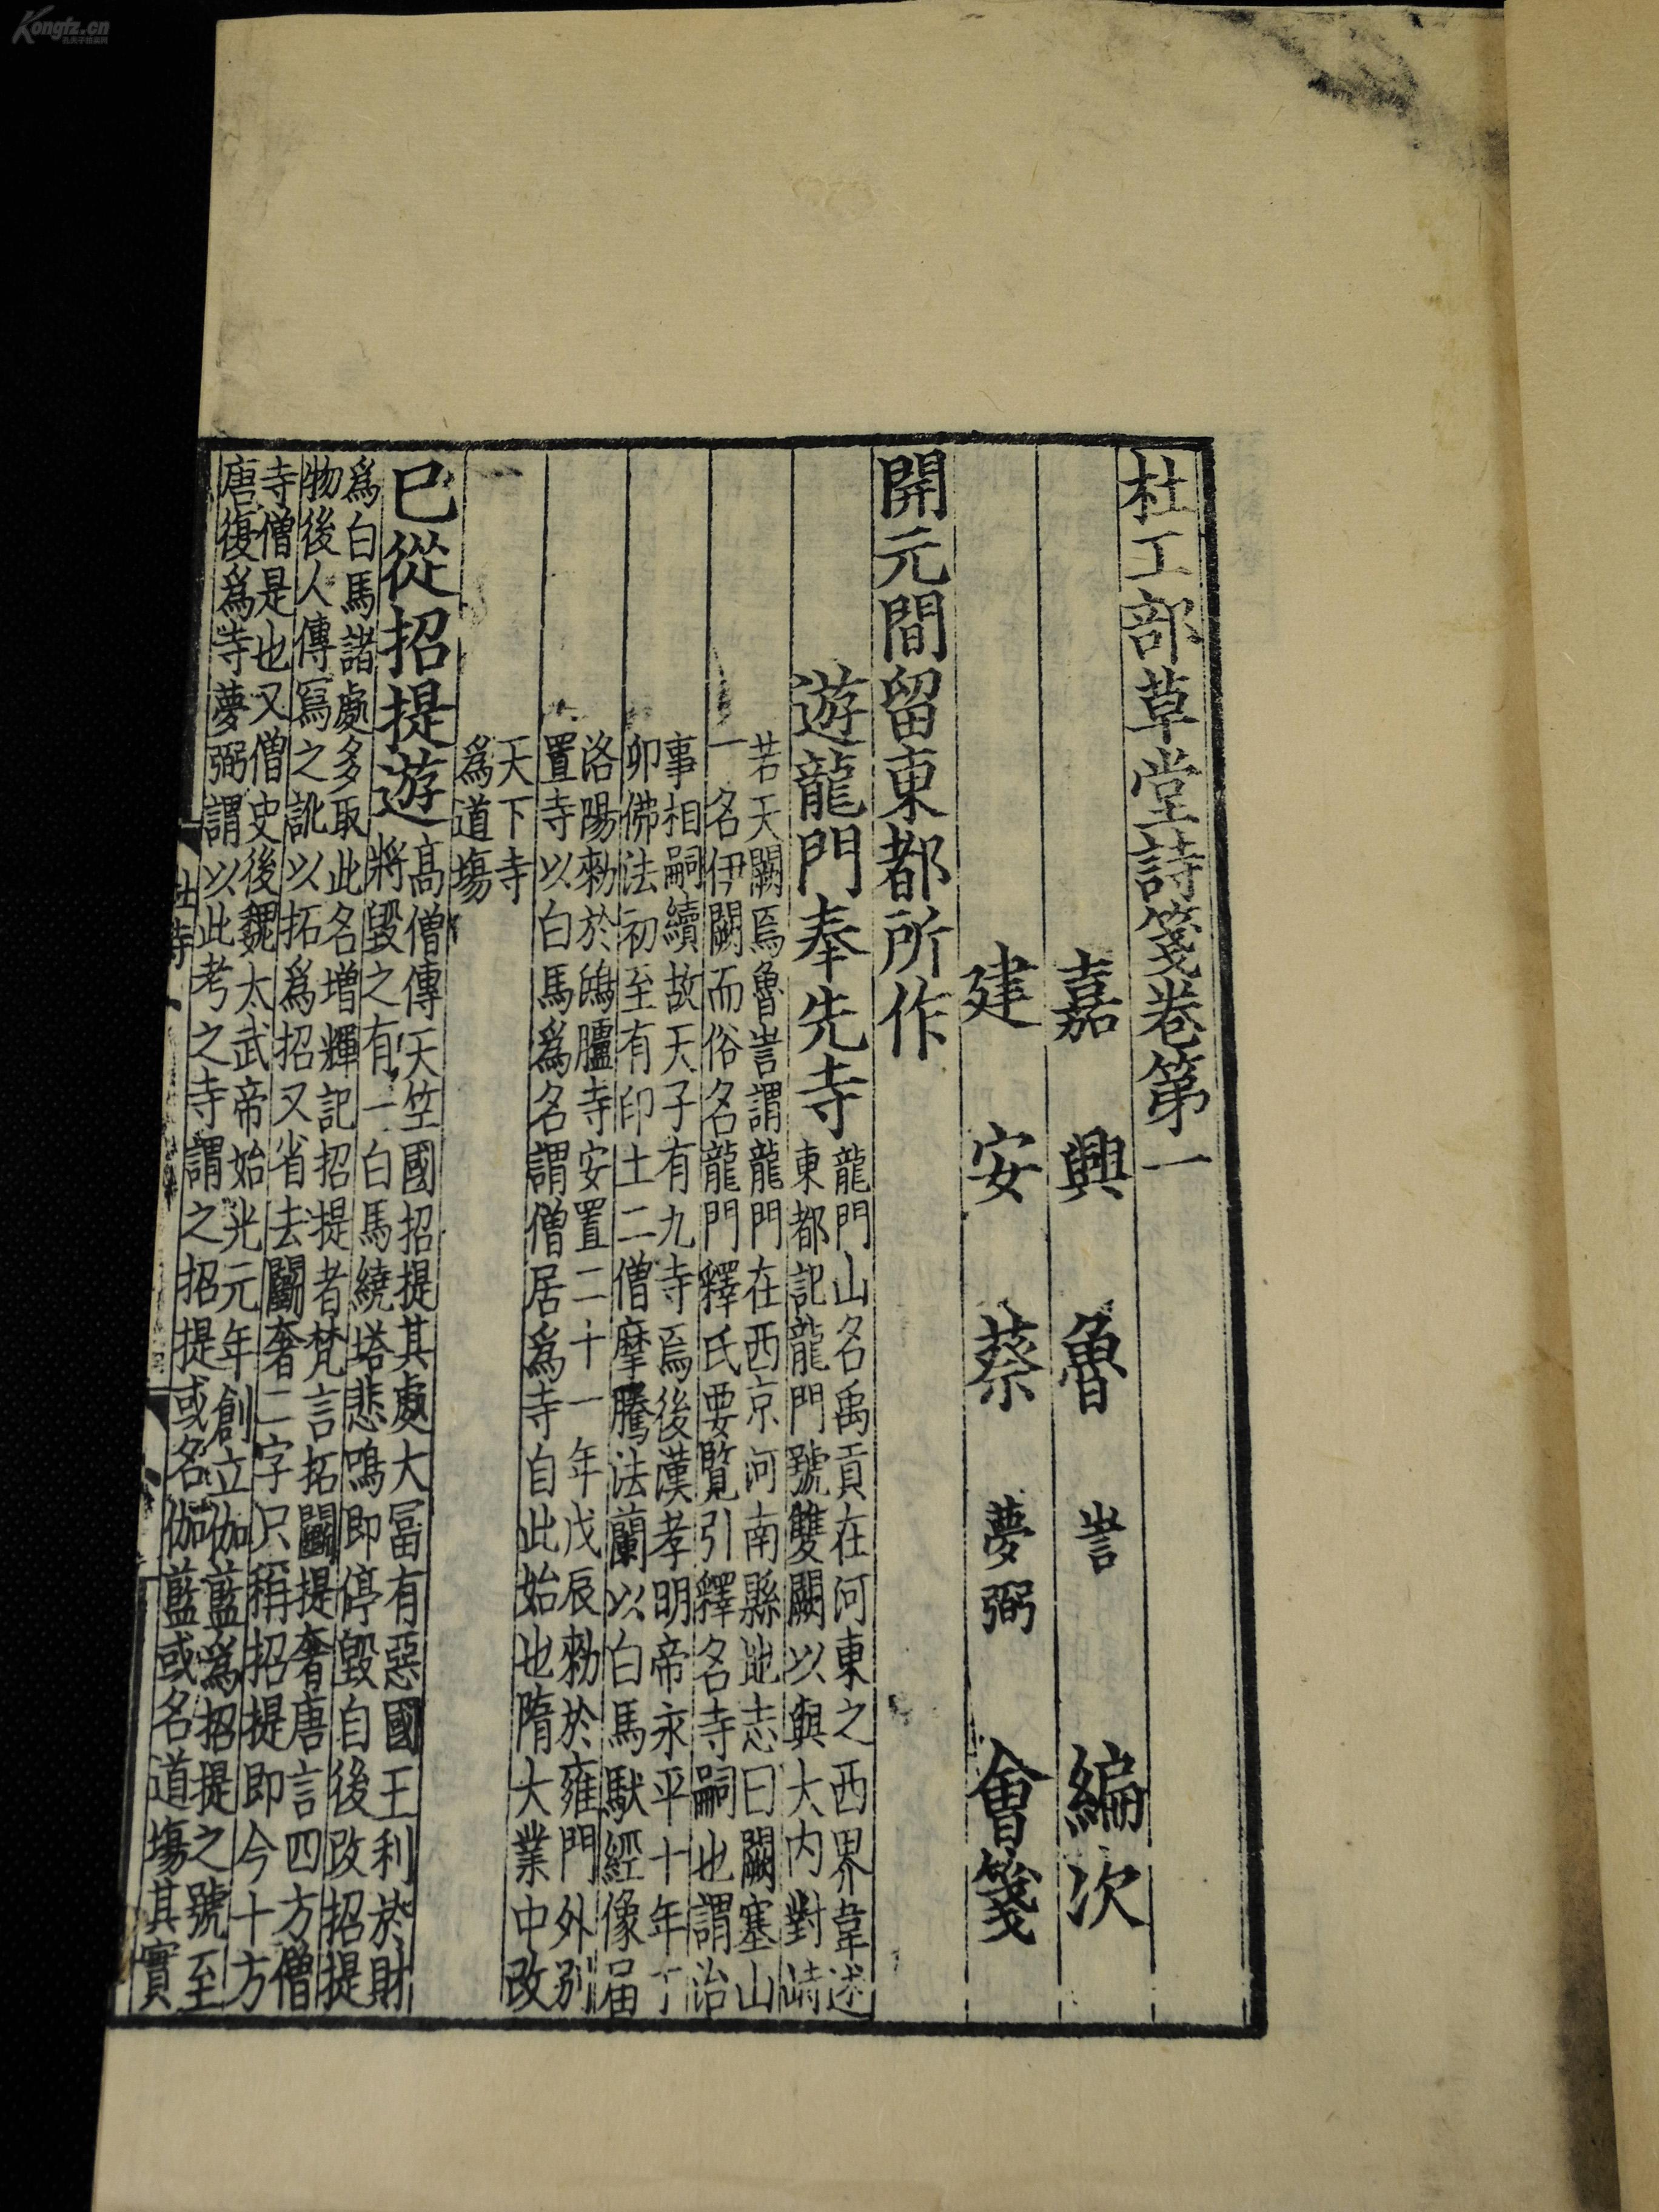 杜工部草堂詩箋卷第一
嘉興魯訔編次
建安蔡夢弼會箋
開元間留東都所作
遊龍門奉先寺
龍門山名禹貢在河東之西界韋述
東都記龍門號雙闕以與大內對峙
若天闕焉魯訔謂龍門在西京河南縣地志曰闕塞山
一名伊闕而俗名龍門釋氏要覽引釋名寺嗣也謂治
事相嗣續故天子有九寺焉後漢孝明帝永平十年丁
卯佛法初至有印土二僧摩騰法蘭以白馬馱經像届
洛陽勑於鴻臚寺安置二十一年戊辰勑於雍門外别
置寺以白馬爲名謂僧居爲寺自此始也隋大業中改
天下寺
爲道塲
已從招提遊
高僧傳天竺國招提其處大冨有惡國王利於財
將毀之有一白馬繞塔悲鳴即停毀自後改招提
爲白馬諸處多取此名增輝記招提者梵言拓鬬提奢唐言四方僧
物後人傳寫之訛以拓爲招又省去鬬奢二字只稱招提即今十方
寺僧是也又僧史後魏太武帝始光元年創立伽藍爲招提之號至
唐復爲寺夢弼謂以此考之寺謂之招提或名伽藍或名道塲其實
杜詩
Kongfz.cn